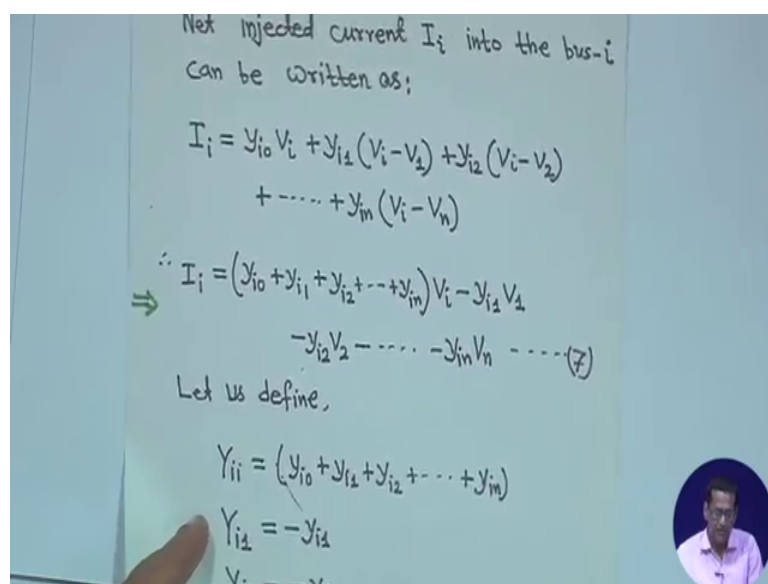 Net injected current Iᵢ into the bus-i
can be written as:
Iᵢ = yᵢ₀ Vᵢ + yᵢ₁ (Vᵢ − V₁) + yᵢ₂ (Vᵢ − V₂)
+ ----- + yᵢₙ (Vᵢ − Vₙ)
∴ Iᵢ = (yᵢ₀ + yᵢ₁ + yᵢ₂ + --- + yᵢₙ) Vᵢ − yᵢ₁ V₁
⇒
− yᵢ₂ V₂ − ----- − yᵢₙ Vₙ -----(7)
Let us define,
Yᵢᵢ = (yᵢ₀ + yᵢ₁ + yᵢ₂ + --- + yᵢₙ)
Yᵢ₁ = − yᵢ₁